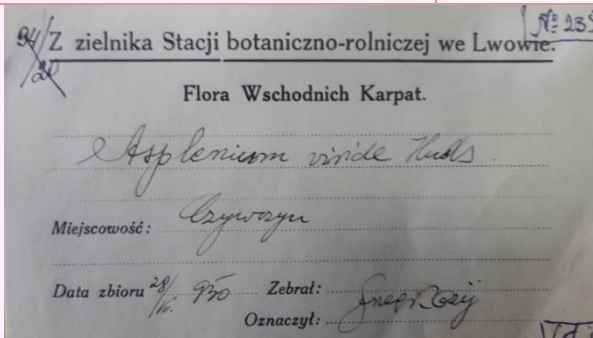 94/20
№ 235
Z zielnika Stacji botaniczno-rolniczej we Lwowie.
Flora Wschodnich Karpat.
Asplenium viride Huds.
Miejscowość: Czywczyn
Data zbioru 28/VII. 930 Zebrał:
Oznaczył: